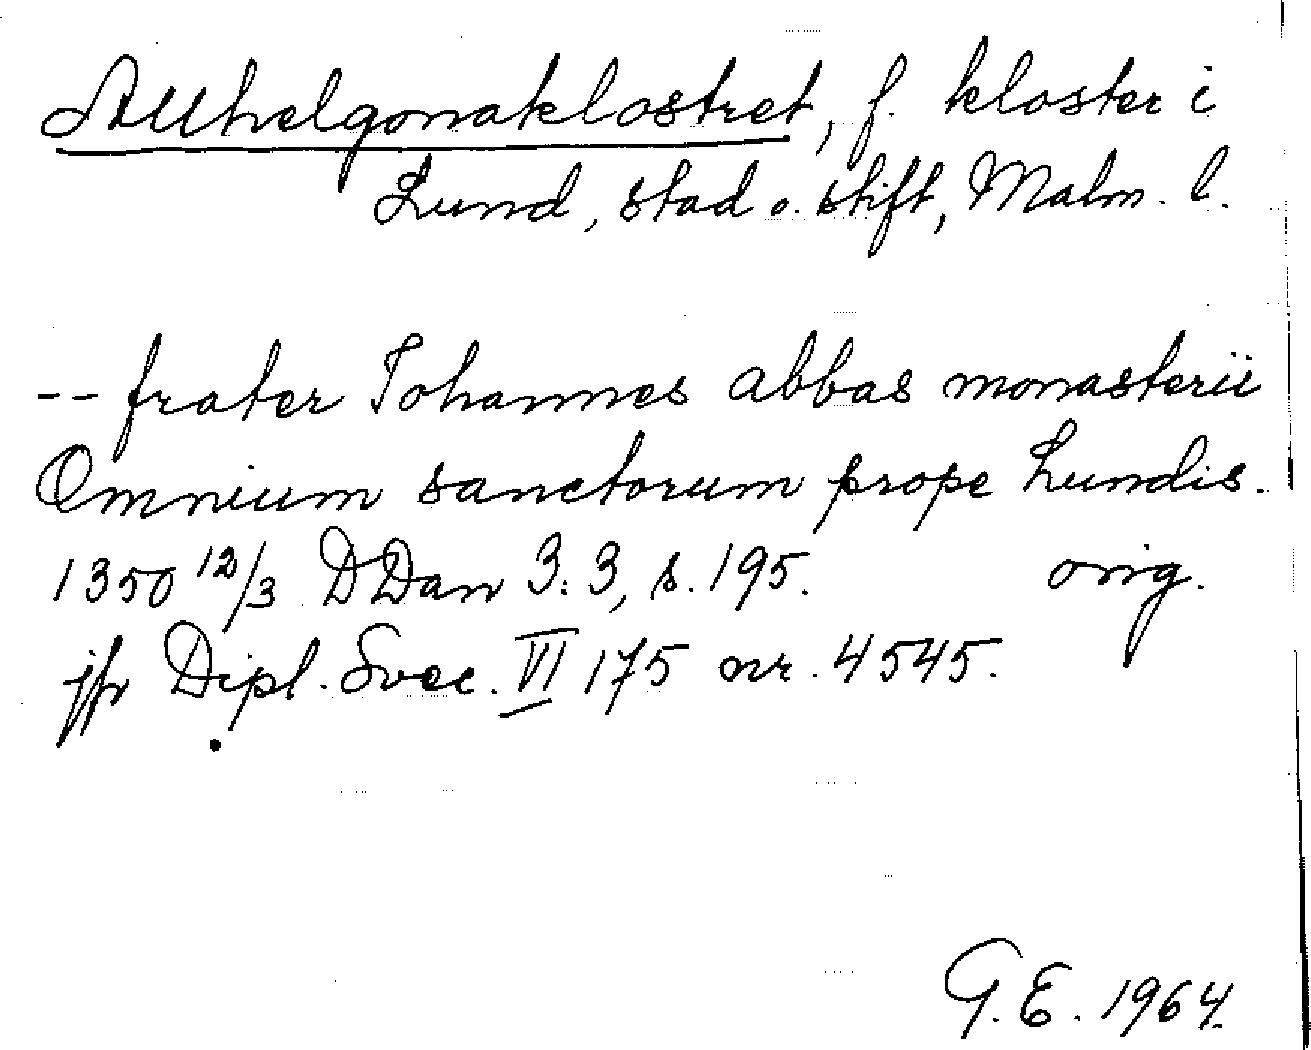 Allhelgonaklostret, f. kloster i
Lund, stad o. stift, Malm. l.
-- frater Johannes abbas monasterii
Omnium sanctorum prope Lundis.
1350 12/3 DDan 3:3, s. 195. orig.
jfr Dipl. Svec. VI 175 nr. 4545.
G. E. 1964.